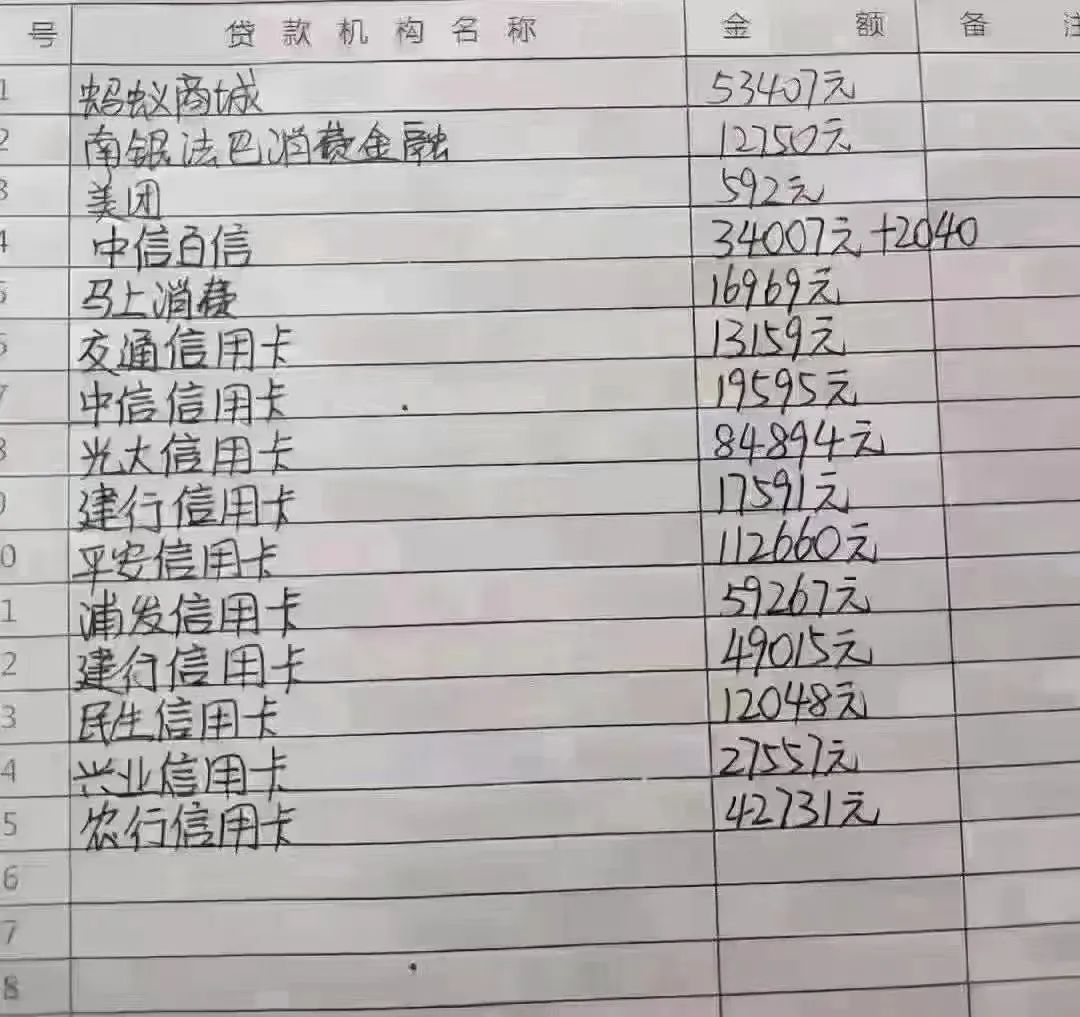 号 贷款机构名称 金额 备注
1 蚂蚁商城 53407元
2 南银法巴消费金融 12750元
3 美团 592元
4 中信百信 34007元+2040
5 马上消费 16969元
6 交通信用卡 13159元
7 中信信用卡 19595元
8 光大信用卡 84894元
9 建行信用卡 17591元
0 平安信用卡 112660元
1 浦发信用卡 59267元
2 建行信用卡 49015元
3 民生信用卡 12048元
4 兴业信用卡 27557元
5 农行信用卡 42731元
6
7
8